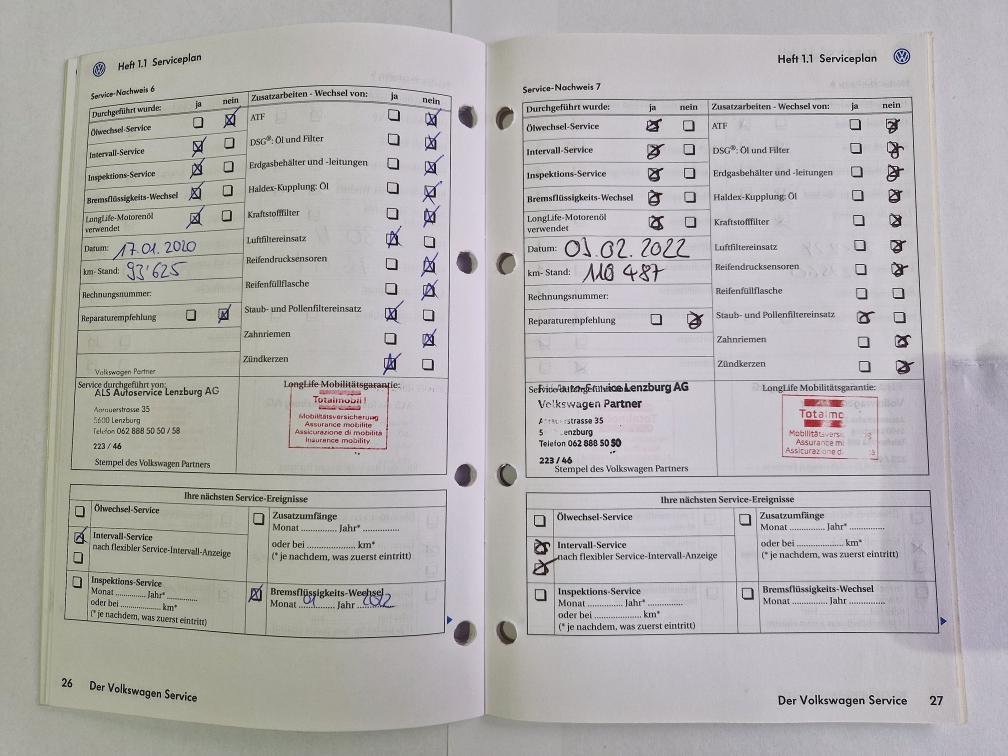 Heft 1.1 Serviceplan
Service-Nachweis 6
Durchgeführt wurde: ja nein
Ölwechsel-Service
Intervall-Service
Inspektions-Service
Bremsflüssigkeits-Wechsel
LongLife-Motorenöl
verwendet
Datum: 17.01.2020
km- Stand: 93'625
Rechnungsnummer:
Reparaturempfehlung
Zusatzarbeiten - Wechsel von: ja nein
ATF
DSG®: Öl und Filter
Erdgasbehälter und -leitungen
Haldex-Kupplung: Öl
Kraftstofffilter
Luftfiltereinsatz
Reifendrucksensoren
Reifenfüllflasche
Staub- und Pollenfiltereinsatz
Zahnriemen
Zündkerzen
Volkswagen Partner
Service durchgeführt von:
ALS Autoservice Lenzburg AG
Aarauerstrasse 35
5600 Lenzburg
Telefon 062 888 50 50 / 58
223 / 46
Stempel des Volkswagen Partners
LongLife Mobilitätsgarantie:
Totalmobil!
Mobilitätsversicherung
Assurance mobilité
Assicurazione di mobilità
Insurance mobility
Ihre nächsten Service-Ereignisse
Ölwechsel-Service
Intervall-Service
nach flexibler Service-Intervall-Anzeige
Inspektions-Service
Monat ............ Jahr* ............
oder bei ............ km*
(* je nachdem, was zuerst eintritt)
Zusatzumfänge
Monat ............ Jahr* ............
oder bei ............ km*
(* je nachdem, was zuerst eintritt)
Bremsflüssigkeits-Wechsel
Monat 01 Jahr 2022
26 Der Volkswagen Service
Heft 1.1 Serviceplan
Service-Nachweis 7
Durchgeführt wurde: ja nein
Ölwechsel-Service
Intervall-Service
Inspektions-Service
Bremsflüssigkeits-Wechsel
LongLife-Motorenöl
verwendet
Datum: 02.2022
km- Stand: 110 487
Rechnungsnummer:
Reparaturempfehlung
Zusatzarbeiten - Wechsel von: ja nein
ATF
DSG®: Öl und Filter
Erdgasbehälter und -leitungen
Haldex-Kupplung: Öl
Kraftstofffilter
Luftfiltereinsatz
Reifendrucksensoren
Reifenfüllflasche
Staub- und Pollenfiltereinsatz
Zahnriemen
Zündkerzen
Lenzburg AG
Volkswagen Partner
strasse 35
5 enzburg
Telefon 062 888 50 50
223 / 46
Stempel des Volkswagen Partners
LongLife Mobilitätsgarantie:
Totalmo
Mobilitätsversic
Assurance m
Assicurazione d
Ihre nächsten Service-Ereignisse
Ölwechsel-Service
Intervall-Service
nach flexibler Service-Intervall-Anzeige
Inspektions-Service
Monat ............ Jahr* ............
oder bei ............ km*
(* je nachdem, was zuerst eintritt)
Zusatzumfänge
Monat ............ Jahr* ............
oder bei ............ km*
(* je nachdem, was zuerst eintritt)
Bremsflüssigkeits-Wechsel
Monat ............ Jahr ............
Der Volkswagen Service 27